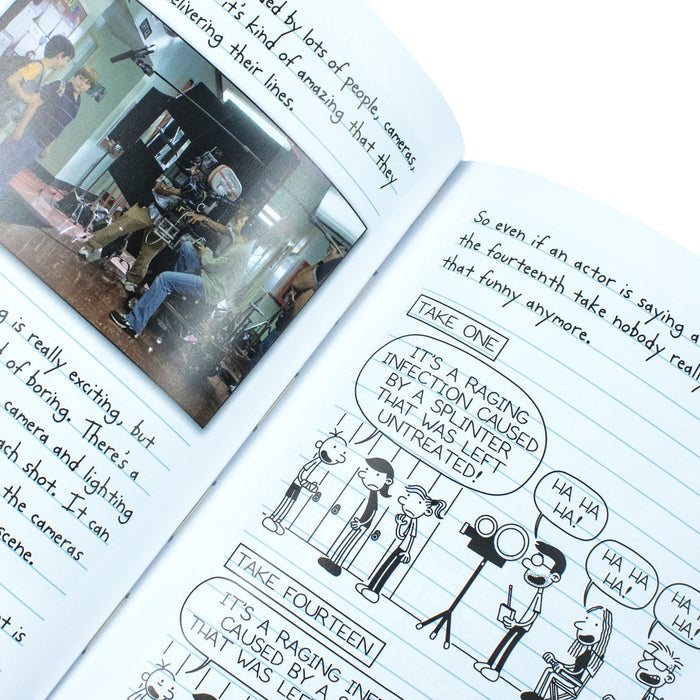 ed by lots of people, cameras,
it's kind of amazing that they
elivering their lines.
g is really exciting, but
d of boring. There's a
camera and lighting
ach shot. It can
the cameras
scene.
t is
So even if an actor is saying a
the fourteenth take nobody reall
that funny anymore.
TAKE ONE
IT'S A RAGING
INFECTION CAUSED
BY A SPLINTER
THAT WAS LEFT
UNTREATED!
HA HA
HA!
HA HA
HA!
HA
HA!
TAKE FOURTEEN
IT'S A RAGING INFE
CAUSED BY A S
THAT WAS LEF